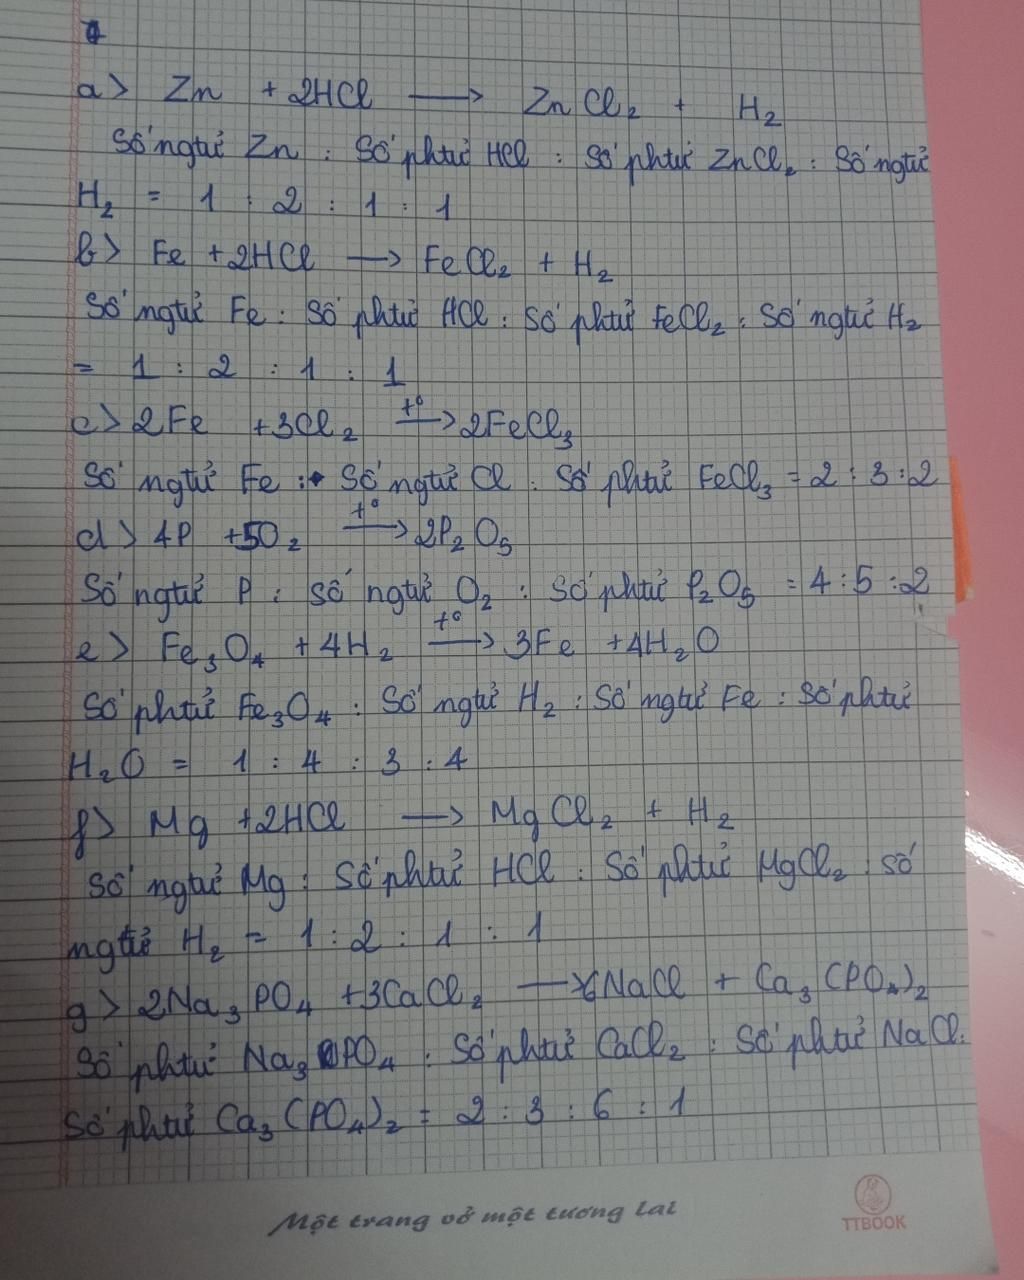 a> Zn + 2HCl ⟶ ZnCl₂ + H₂
Số ngtử Zn : Số phtử HCl : Số phtử ZnCl₂ : Số ngtử
H₂ = 1 : 2 : 1 : 1
b> Fe + 2HCl ⟶ FeCl₂ + H₂
Số ngtử Fe : Số phtử HCl : Số phtử FeCl₂ : Số ngtử H₂
= 1 : 2 : 1 : 1
c> 2Fe + 3Cl₂ ⟶ t° 2FeCl₃
Số ngtử Fe : Số ngtử Cl : Số phtử FeCl₃ = 2 : 3 : 2
d> 4P + 5O₂ ⟶ t° 2P₂O₅
Số ngtử P : Số ngtử O₂ : Số phtử P₂O₅ = 4 : 5 : 2
e> Fe₃O₄ + 4H₂ ⟶ t° 3Fe + 4H₂O
Số phtử Fe₃O₄ : Số ngtử H₂ : Số ngtử Fe : Số phtử
H₂O = 1 : 4 : 3 : 4
f> Mg + 2HCl ⟶ MgCl₂ + H₂
Số ngtử Mg : Số phtử HCl : Số phtử MgCl₂ : số
ngtử H₂ = 1 : 2 : 1 : 1
g> 2Na₃PO₄ + 3CaCl₂ ⟶ 6NaCl + Ca₃(PO₄)₂
Số phtử Na₃PO₄ : Số phtử CaCl₂ : Số phtử NaCl :
Số phtử Ca₃(PO₄)₂ = 2 : 3 : 6 : 1
Một trang vở một tương lai
TTBOOK